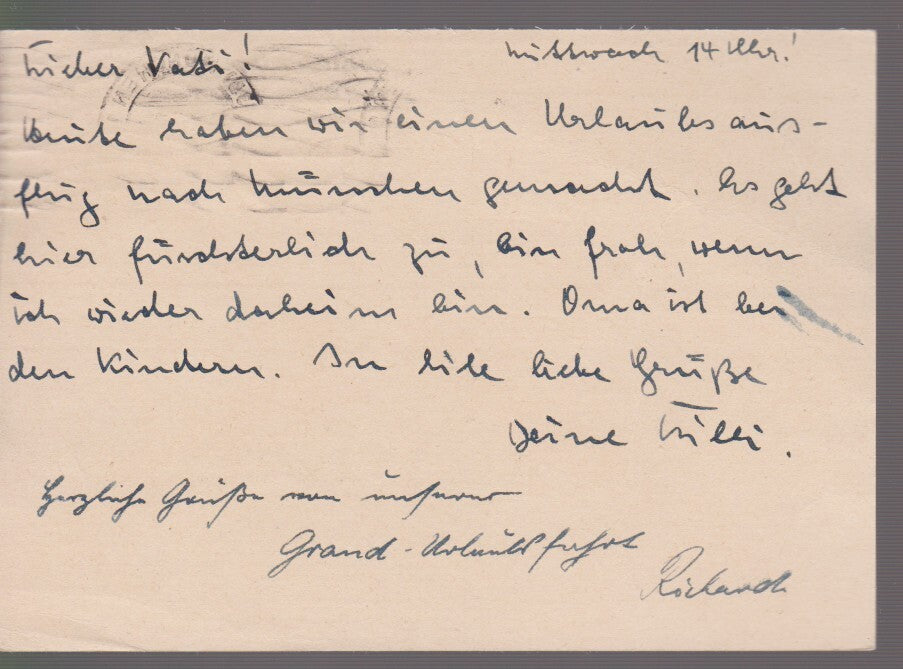 Lieber Vati! Mittwoch 14 Uhr!
Heute haben wir einen Urlaubsaus-
flug nach München gemacht. Es geht
hier fürchterlich zu, bin froh, wenn
ich wieder daheim bin. Oma ist bei
den Kindern. In Eile liebe Grüße
Deine Lilli.
Herzliche Grüße von unserer
Grand-Urlaubsfahrt
Richard